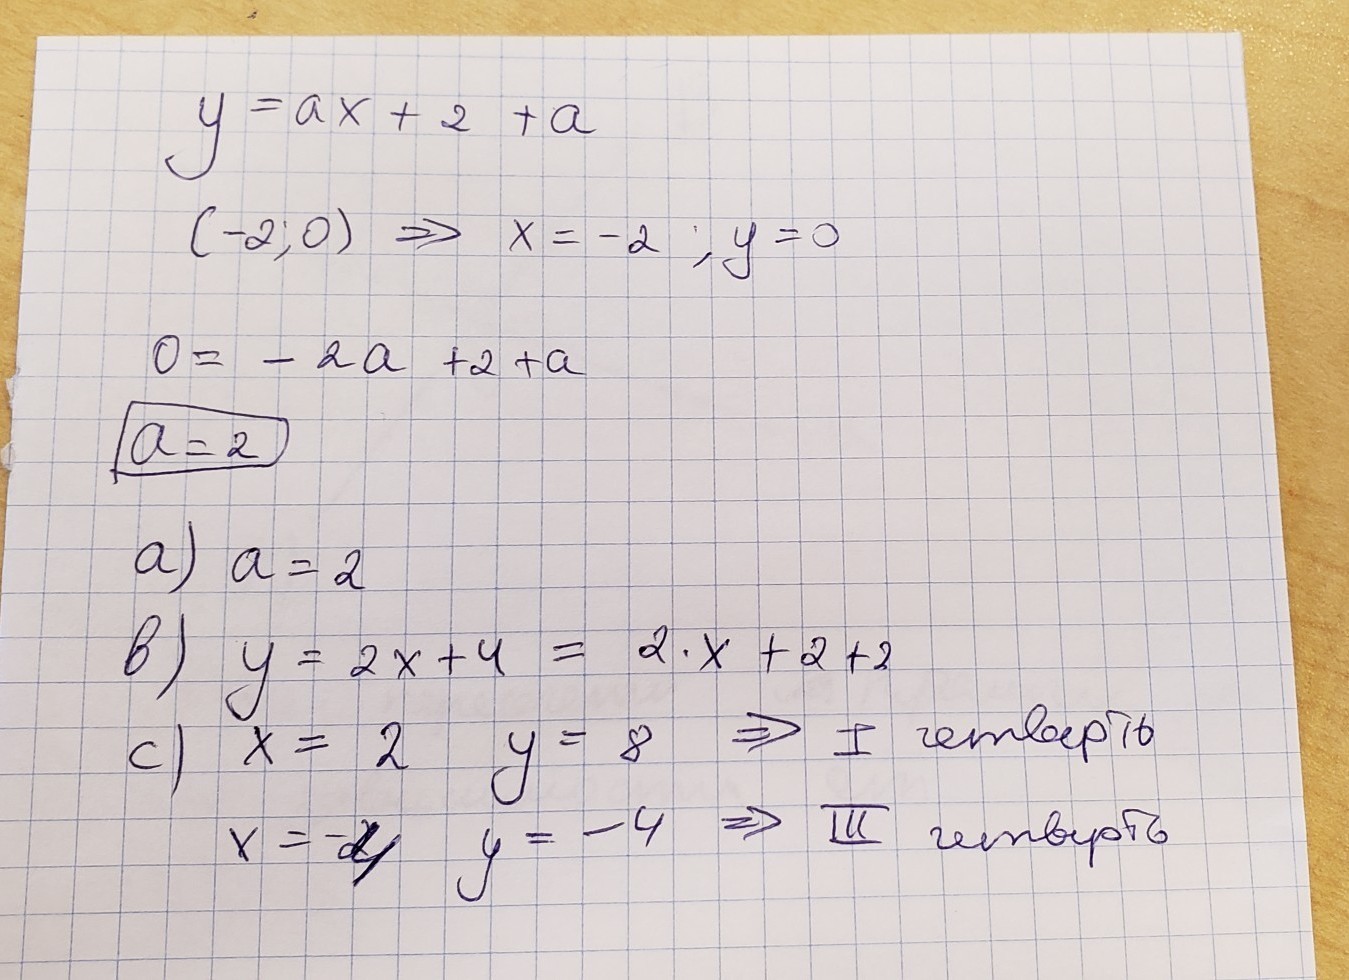 y = ax + 2 + a
(-2; 0) => x = -2 ; y = 0
0 = - 2a + 2 + a
a = 2
a) a = 2
b) y = 2x + 4 = 2·x + 2 + 2
c) x = 2 y = 8 => I четверть
x = -4 y = -4 => III четверть